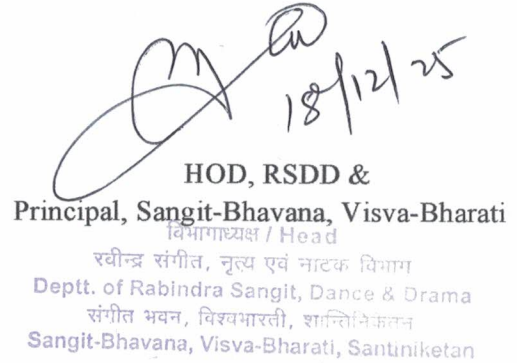 18/12/25
HOD, RSDD &
Principal, Sangit-Bhavana, Visva-Bharati
विभागाध्यक्ष / Head
रवीन्द्र संगीत, नृत्य एवं नाटक विभाग
Deptt. of Rabindra Sangit, Dance & Drama
संगीत भवन, विश्वभारती, शान्तिनिकेतन
Sangit-Bhavana, Visva-Bharati, Santiniketan